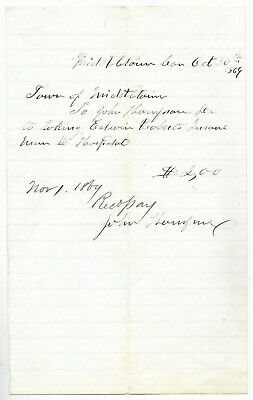 Middletown Con Oct 30th
1869
Town of Middletown
To John Thompson
to taking Edwin Roberts Insane
man to Hospital
$2,00
Nov 1. 1869
Recd pay
John Thompson